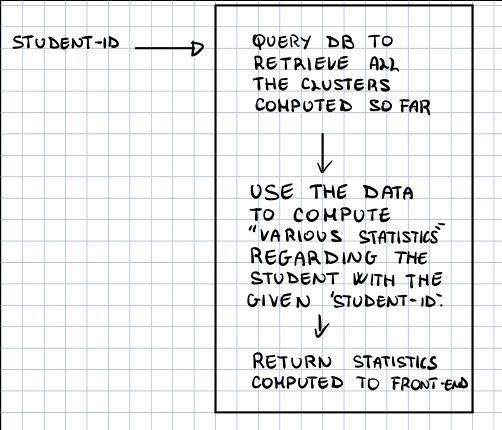 STUDENT-ID
QUERY DB TO
RETRIEVE ALL
THE CLUSTERS
COMPUTED SO FAR
USE THE DATA
TO COMPUTE
"VARIOUS STATISTICS"
REGARDING THE
STUDENT WITH THE
GIVEN 'STUDENT-ID'.
RETURN STATISTICS
COMPUTED TO FRONT-END